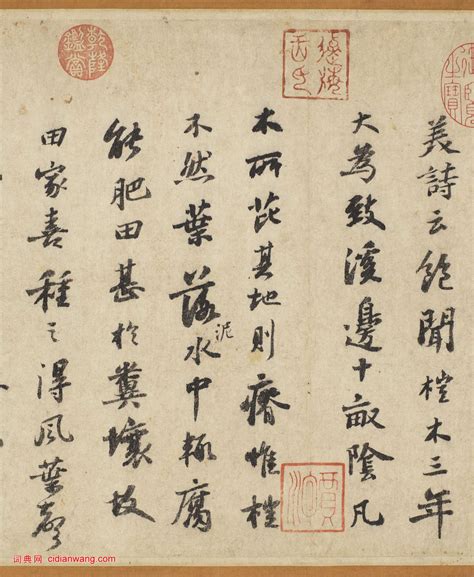 美詩云飽聞榿木三年
大為致溪邊十畝陰凡
木所芘其地則瘠惟榿
不然葉落泥水中輒腐
能肥田甚於糞壤故
田家喜種之得風葉聲
乾隆鑑賞
词典网 cidianwang.com